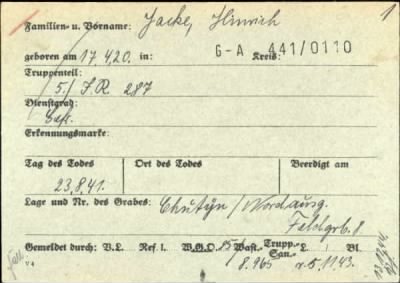 Familien- u. Vorname: Jacke, Hinrich 1
geboren am 17.4.20. in: G-A 441/0110 Kreis:
Truppenteil:
5./ J.R. 287
Dienstgrad:
Gefr.
Erkennungsmarke:
Tag des Todes Ort des Todes Beerdigt am
23.8.41.
Lage und Nr. des Grabes: Chutyn / Nordausg.
Feldgrb. 8
Gemeldet durch: V.L. Ref. I. W.G.O. Wast.- Trupp.- San.- L. Bl.
8.965 v. 5.11.43.
V4